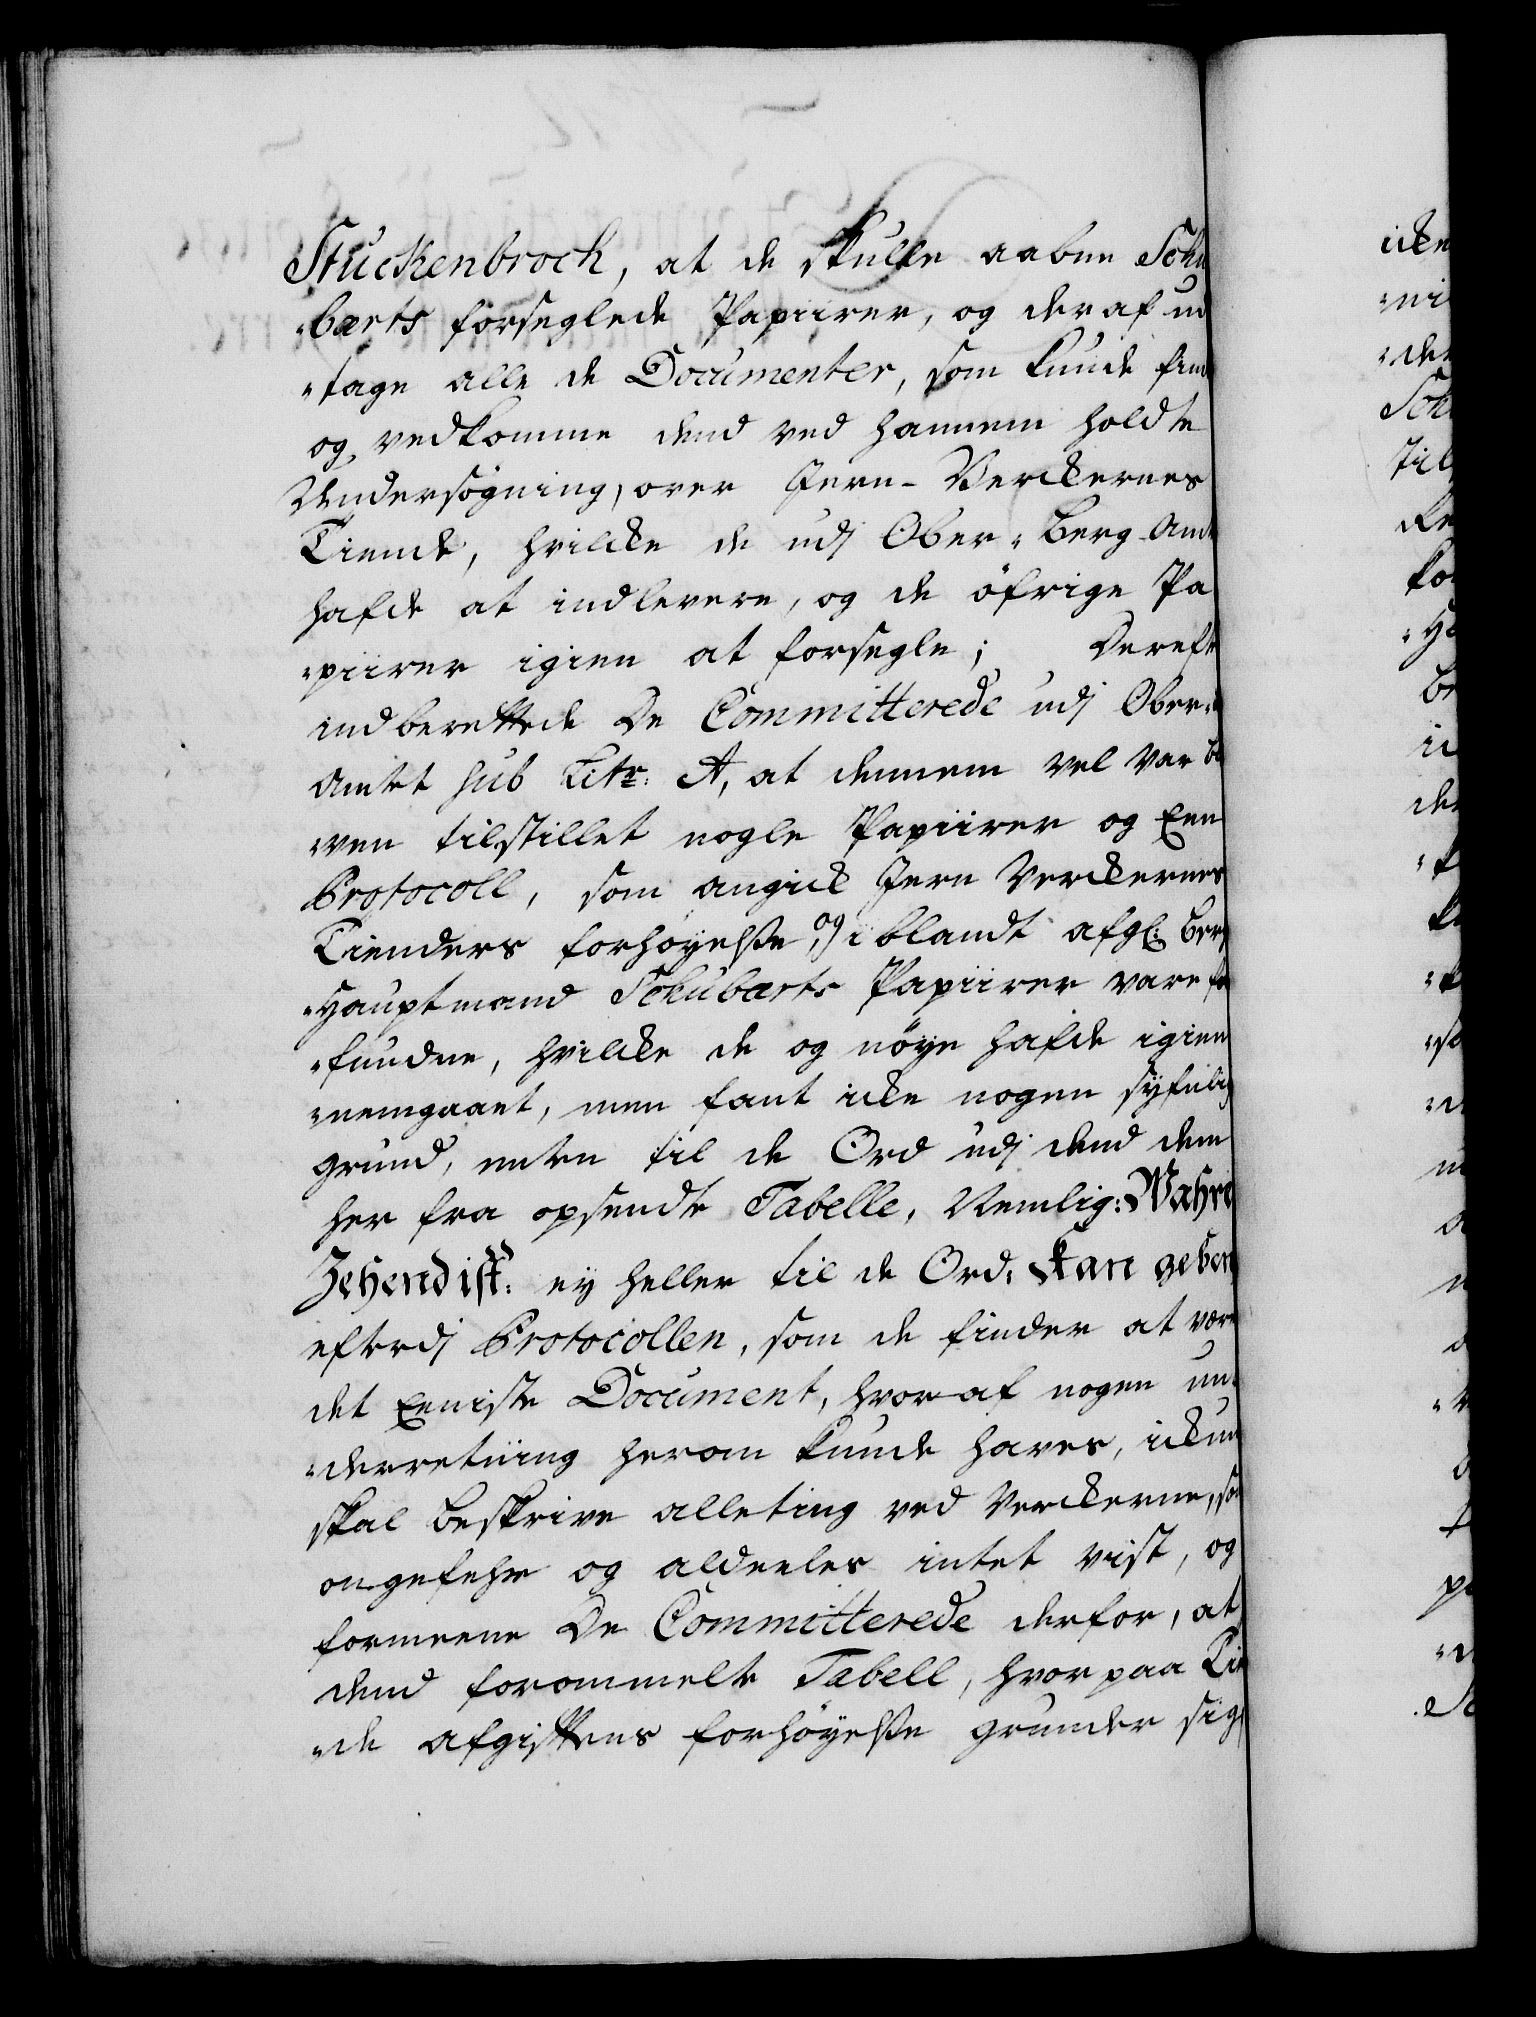 Stuckenbrock, at de skulle aabne Schu
"barts forseglede Papiirer, og deraf ud
"tage alle de Documenter, som kunde find
og vedkomme dend ved hannem holdte
Undersøgning, over Jern-Verckernes
Tiende, hvilcke de udj Ober-Berg-Amt
hafde at indlevere, og de öfrige Pa
"piirer igien at forsegle; Dereft
indberettede De Committerede udj Ober-
Amtet sub Litr: A, at dennem vel var bl
"ven tilstillet nogle Papiirer og Een
Protocoll, som angick Jern Verckernes
Tienders forhöyelsse, og iblandt afgl: Berg
"Hauptmand Schubarts Papiirer vare fo
"fundne, hvilcke de og nöye hafde igien
"nemgaaet, men fant icke nogen syfnlig
grund, enten til de Ord udj dend dem
her fra opsendte Tabelle, Nemlig: Wahre
Zehend ist: ey heller til de Ord, kan geben
efterdj Protocollen, som de finder at være
det Eeniste Document, hvoraf nogen un-
"derretning herom kunde haves, ickun
skal beskrive alleting ved Verckerne, so
ongefehr og aldeeles intet vist, og
formeene De Committerede derfor, at
dend forommelte Tabell, hvorpaa Tie
"de afgiftens forhöyelsse grunder sig